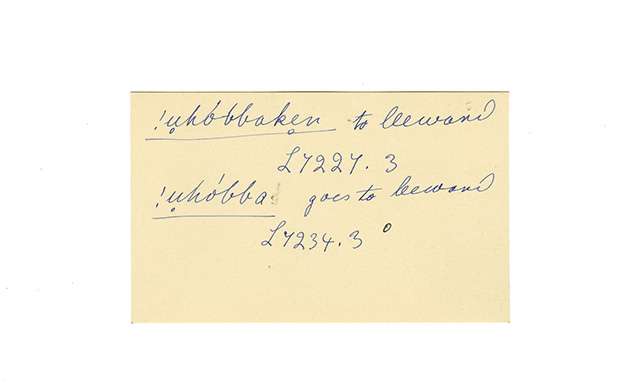 !u̥hóbbake̥n to leeward
L7227. 3
!u̥hóbba goes to leeward
L7234. 3